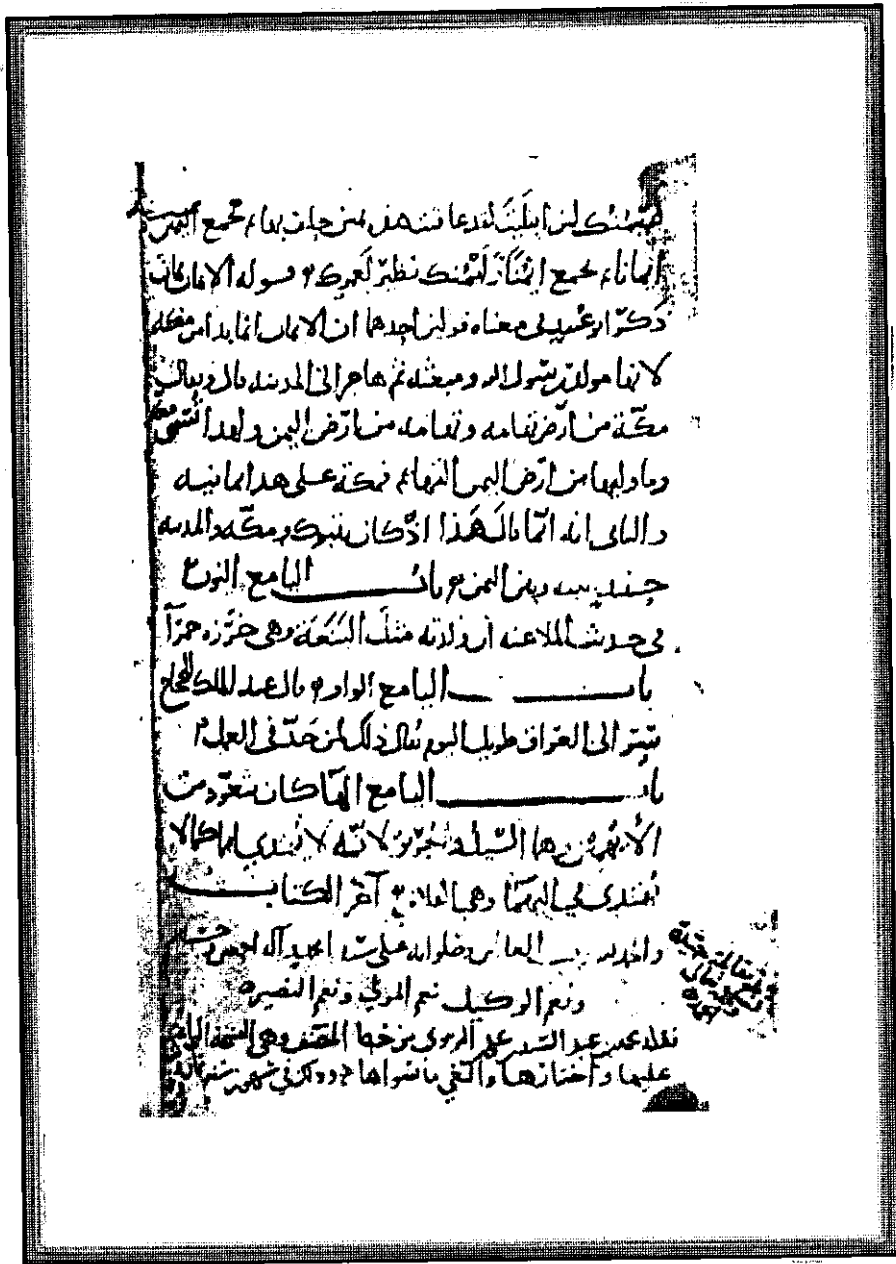 ليمنك لئن ابتليت لقد عافيت هى يمين حلف بها ثم تجمع اليمين
ايمانا ثم تجمع ايمنا لَيمنك نظير لَعمرك قوله الايمان يمان
ذكر ابو عبيد فى معناه قولين احدهما ان الايمان انما بدا من مكه
لانها مولد رسول الله ومبعثه ثم هاجر الى المدينه قال ويقال
مكّة من ارض تهامه وتهامه من ارض اليمن ولهذا تسمى
وما وليها من ارض اليمن التهائم فمكة على هذا يمانيه
والثانى انه انما قال هَذا اذ كان بتبوك ومكّه والمدينه
حينئذ بينه وبين اليمن باب اليا مع النون
فى حديث الملاعنه ان ولدته مثل اليَنَعَة وهى خرزه حمرآ
باب اليا مع الواو قال عبد الملك للحجاج
سر الى العراق طويل اليوم يقال ذلك لمن جدّ فى العمل
باب اليا مع الهآ كان يتعوّذ من
الأيهمين وهما السّيل والحريق لانّه لا يُهتدي لهما كما لا
يُهتدى فى اليهمآ وهى الفلاة آخر الكتاب
والحمد لله رب العالمين وصلواته على محمد وآله اجمعين
ونعم الوكيل نعم المولى ونعم النصير
نقله محمد بن عبد من خط المصنف وهى النسخه
عليها واختارها والغي ما سواها وذلك فى شهور سنه